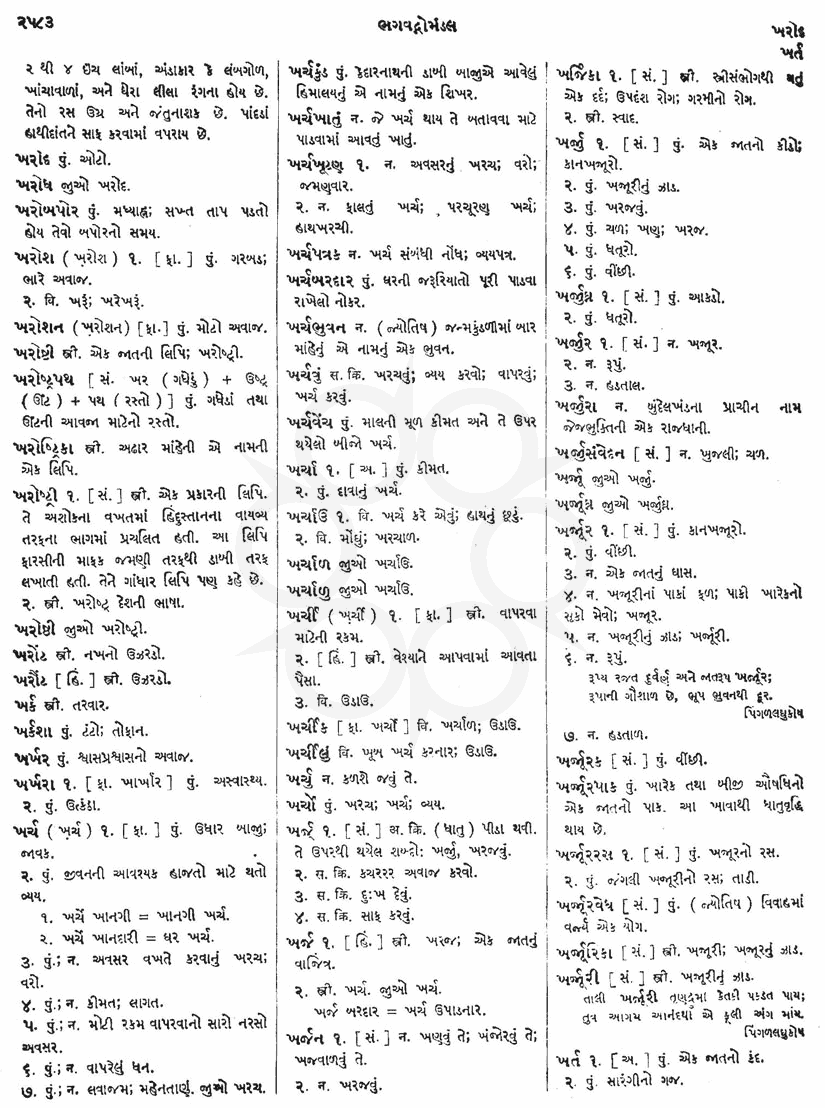 ૨૫૮૩
ભગવદ્ગોમંડલ
ખરોદ
ખર્ત
૨ થી ૪ ઇંચ લાંબાં, અંડાકાર કે લંબગોળ,
ખાંચાવાળાં, અને ઘેરા લીલા રંગના હોય છે.
તેનો રસ ઉગ્ર અને જંતુનાશક છે. પાંદડાં
હાથીદાંતને સાફ કરવામાં વપરાય છે.
ખરોદ પું. ઓટો.
ખરોધ જીુઓ ખરોદ.
ખરોબપોર પું. મધ્યાહ્ન; સખ્ત તાપ પડતો
હોય તેવો બપોરનો સમય.
ખરોશ ( ખ઼રોશ ) ૧. [ ફા. ] પું. ગરબડ;
ભારે અવાજ.
૨. વિ. ખરૂં; ખરેખરૂં.
ખરોશન ( ખ઼રોશન ) [ ફા. ] પું. મોટો અવાજ.
ખરોષ્ટી સ્ત્રી. એક જાતની લિપિ; ખરોષ્ટ્રી.
ખરોષ્ટ્રપથ [ સં. ખર ( ગધેડું ) + ઉષ્ટ્ર
( ઊંટ ) + પથ ( રસ્તો ) ] પું. ગધેડાં તથા
ઊંટની આવજા માટેનો રસ્તો.
ખરોષ્ટ્રિકા સ્ત્રી. અઢાર માંહેની એ નામની
એક લિપિ.
ખરોષ્ટ્રી ૧. [ સં. ] સ્ત્રી. એક પ્રકારની લિપિ.
તે અશોકના વખતમાં હિંદુસ્તાનના વાયવ્ય
તરફના ભાગમાં પ્રચલિત હતી. આ લિપિ
ફારસીની માફક જમણી તરફથી ડાબી તરફ
લખાતી હતી. તેને ગાંધાર લિપિ પણ કહે છે.
૨. સ્ત્રી. ખરોષ્ટ્ર દેશની ભાષા.
ખરોષ્ઠી જીુઓ ખરોષ્ટ્રી.
ખરોંટ સ્ત્રી. નખનો ઉઝરડો.
ખરૌંટ [ હિં. ] સ્ત્રી. ઉઝરડો.
ખર્ક સ્ત્રી. તરવાર.
ખર્કશા પું. ટંટો; તોફાન.
ખર્ખર પું. શ્વાસપ્રશ્વાસનો અવાજ.
ખર્ખરા ૧. [ ફા. ખાર્ખાર ] પું. અસ્વાસ્થ્ય.
૨. પું. ઉત્કંઠા.
ખર્ચ ( ખ઼ર્ચ ) ૧. [ ફા. ] પું. ઉધાર બાજીુ;
જાવક.
૨. પું. જીવનની આવશ્યક હાજતો માટે થતો
વ્યય.
૧. ખર્ચે ખાનગી = ખાનગી ખર્ચ.
૨. ખર્ચે ખાનદારી = ઘર ખર્ચ.
૩. પું.; ન. અવસર વખતે કરવાનું ખરચ;
વરો.
૪. પું.; ન. કીમત; લાગત.
૫. પું.; ન. મોટી રકમ વાપરવાનો સારો નરસો
અવસર.
૬. પું.; ન. વાપરેલું ધન.
૭. પું.; ન. લવાજમ; મહેનતાણું. જીુઓ ખરચ.
ખર્ચકુંડ પું. કેદારનાથની ડાબી બાજીુએ આવેલું
હિમાલયનું એ નામનું એક શિખર.
ખર્ચખાતું ન. જે ખર્ચ થાય તે બતાવવા માટે
પાડવામાં આવતું ખાતું.
ખર્ચખૂટણ ૧. ન. અવસરનું ખરચ; વરો;
જમણવાર.
૨. ન. ફાલતું ખર્ચ; પરચૂરણ ખર્ચ;
હાથખરચી.
ખર્ચપત્રક ન. ખર્ચ સંબંધી નોંધ; વ્યયપત્ર.
ખર્ચબરદાર પું. ઘરની જરૂરિયાતો પૂરી પાડવા
રાખેલો નોકર.
ખર્ચભુવન ન. ( જ્યોતિષ ) જન્મકુંડળીમાં બાર
માંહેનું એ નામનું એક ભુવન.
ખર્ચવું સ. ક્રિ. ખરચવું; વ્યય કરવો; વાપરવું;
ખર્ચ કરવું.
ખર્ચવેંચ પું. માલની મૂળ કીમત અને તે ઉપર
થયેલો બીજો ખર્ચ.
ખર્ચા ૧. [ અ. ] પું. કીમત.
૨. પું. દાવાનું ખર્ચ.
ખર્ચાઉ ૧. વિ. ખર્ચ કરે એવું; હાથનું છૂટું.
૨. વિ. મોંઘું; ખરચાળ.
ખર્ચાળ જીુઓ ખર્ચાઉ.
ખર્ચાળુ જીુઓ ખર્ચાઉ.
ખર્ચી ( ખ઼ર્ચી ) ૧. [ ફા. ] સ્ત્રી. વાપરવા
માટેની રકમ.
૨. [ હિં. ] સ્ત્રી. વેશ્યાને આપવામાં આવતા
પૈસા.
૩. વિ. ઉડાઉ.
ખર્ચીક [ ફા. ખર્ચા ] વિ. ખર્ચાળ; ઉડાઉ.
ખર્ચીલું વિ. ખૂબ ખર્ચ કરનાર; ઉડાઉ.
ખર્ચુ ન. કળશે જવું તે.
ખર્ચો પું. ખરચ; ખર્ચ; વ્યય.
ખર્જ્ ૧. [ સં. ] અ. ક્રિ. ( ધાતુ ) પીડા થવી.
તે ઉપરથી થયેલ શબ્દો: ખર્જી, ખરજવું.
૨. સ. ક્રિ. કચરરર અવાજ કરવો.
૩. સ. ક્રિ. દુ:ખ દેવું.
૪. સ. ક્રિ. સાફ કરવું.
ખર્જ ૧. [ હિં. ] સ્ત્રી. ખરજ; એક જાતનું
વાજિંત્ર.
૨. સ્ત્રી. ખર્ચ. જીુઓ ખર્ચ.
ખર્જ બરદાર = ખર્ચ ઉપાડનાર.
ખર્જન ૧. [ સં. ] ન. ખણવું તે; ખંજોરવું તે;
ખજવાળવું તે.
૨. ન. ખરજવું.
ખર્જિકા ૧. [ સં. ] સ્ત્રી. સ્ત્રીસંભોગથી થતું
એક દર્દ; ઉપદંશ રોગ; ગરમીનો રોગ.
૨. સ્ત્રી. સ્વાદ.
ખર્જુ ૧. [ સં. ] પું. એક જાતનો કીડો;
કાનખજૂરો.
૨. પું. ખજૂરીનું ઝાડ.
૩. પું. ખરજવું.
૪. પું. ચળ; ખણ; ખરજ.
૫. પું. ધતૂરો.
૬. પું. વીંછી.
ખર્જુઘ્ન ૧. [ સં. ] પું. આકડો.
૨. પું. ધતૂરો.
ખર્જુર ૧. [ સં. ] ન. ખજૂર.
૨. ન. રૂપું.
૩. ન. હડતાલ.
ખર્જુરા ન. બુંદેલખંડના પ્રાચીન નામ
જેજભુક્તિની એક રાજધાની.
ખર્જુસંવેદન [ સં. ] ન. ખુજલી; ચળ.
ખર્જૂ જીુઓ ખર્જુ.
ખર્જૂઘ્ન જીુઓ ખર્જુઘ્ન.
ખર્જૂર ૧. [ સં. ] પું. કાનખજૂરો.
૨. પું. વીંછી.
૩. ન. એક જાતનું ઘાસ.
૪. ન. ખજૂરીનાં પાકાં ફળ; પાકી ખારેકનો
સૂકો મેવો; ખજૂર.
૫. ન. ખજૂરીનું ઝાડ; ખર્જૂરી.
૬. ન. રૂપું.
રૂપ્ય રજત દુર્વર્ણ અને જાતરૂપ ખર્જૂર;
રૂપાની ગૌશાળ છે, ભૂપ ભુવનથી દૂર.
પિંગળલઘુકોષ
૭. ન. હડતાળ.
ખર્જૂરક [ સં. ] પું. વીંછી.
ખર્જૂરપાક પું. ખારેક તથા બીજી ઔષધિનો
એક જાતનો પાક. આ ખાવાથી ધાતુવૃદ્ધિ
થાય છે.
ખર્જૂરરસ ૧. [ સં. ] પું. ખજૂરનો રસ.
૨. પું. જંગલી ખજૂરીનો રસ; તાડી.
ખર્જૂરવેધ [ સં. ] પું. ( જ્યોતિષ ) વિવાહમાં
વર્જ્ય એક યોગ.
ખર્જૂરિકા [ સં. ] સ્ત્રી. ખજૂરી; ખજૂરનું ઝાડ.
ખર્જૂરી [ સં. ] સ્ત્રી. ખજૂરીનું ઝાડ.
તાલી ખર્જૂરી તૃણદ્રુમા કેતકી પંક્ત પાય;
તુવ આગમ આનંદથી એ ફૂલી અંગ માંય.
પિંગળલઘુકોષ
ખર્ત ૧. [ અ. ] પું. એક જાતનો કંદ.
૨. પું. સારંગીનો ગજ.